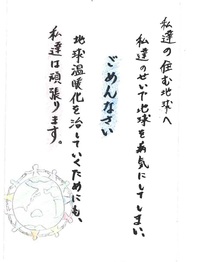 私達の住む地球へ
私達のせいで地球を病気にしてしまい、
ごめんなさい
地球温暖化を治していくためにも、
私達は頑張ります。